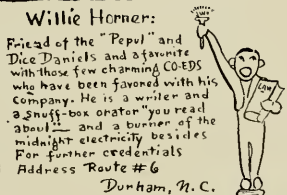 Willie Horner:
Friend of the "Pepul" and
Dice Daniels and a favorite
with those few charming CO-EDS
who have been favored with his
company. He is a writer and
a snuff-box orator "you read
about" — and a burner of the
midnight electricity besides
For further credentials
Address Route #6
Durham, N.C.
LAW